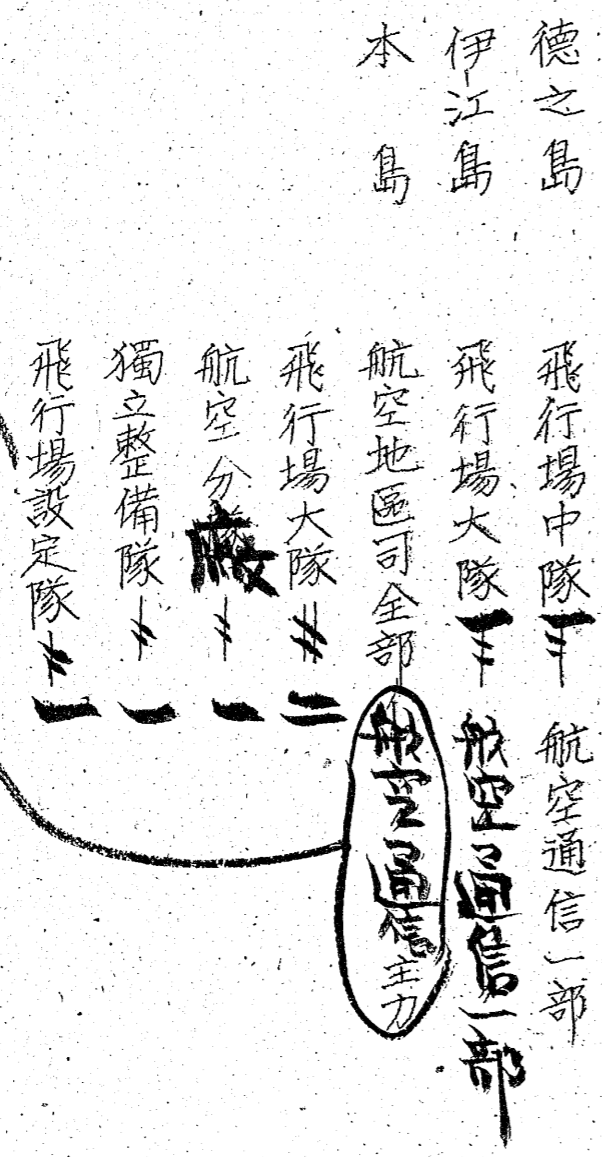 徳之島 飛行場中隊一 航空通信一部
伊江島 飛行場大隊一 航空通信一部
本島 航空地區司全部 航空通信主力
飛行場大隊二
航空分廠一
獨立整備隊一
飛行場設定隊一